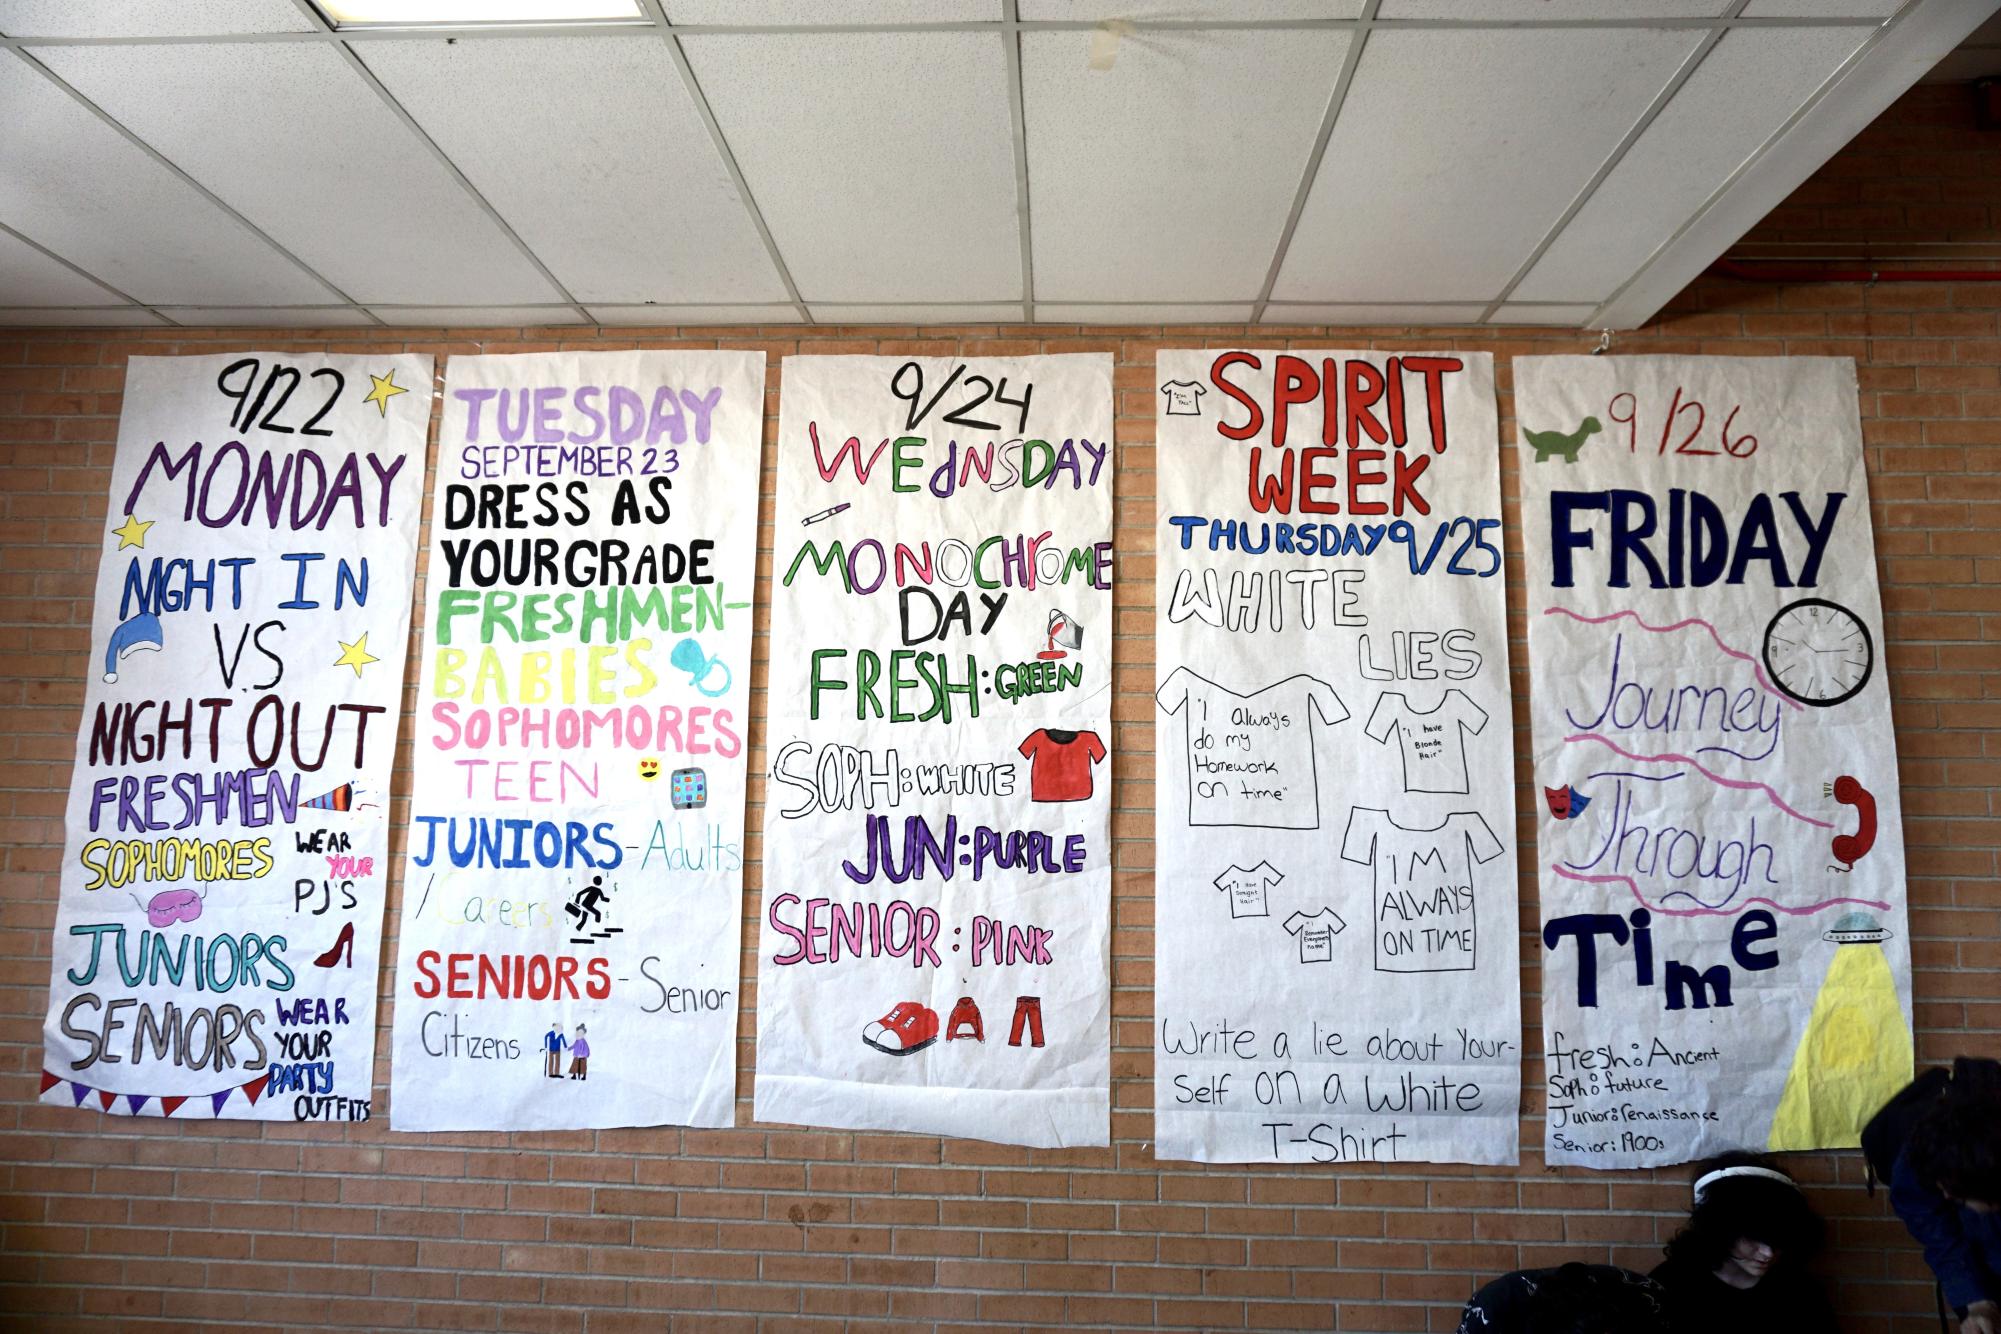 9/22
MONDAY
NIGHT IN
VS
NIGHT OUT
FRESHMEN
SOPHOMORES
WEAR
YOUR
PJ'S
JUNIORS
SENIORS
WEAR
YOUR
PARTY
OUTFITS
TUESDAY
SEPTEMBER 23
DRESS AS
YOUR GRADE
FRESHMEN-
BABIES
SOPHOMORES
TEEN
JUNIORS-Adults
/Careers
SENIORS-Senior
Citizens
9/24
WEdNSDAY
MONOCHrOME
DAY
FRESH:GREEN
SOPH:WHITE
JUN:PURPLE
SENIOR:PINK
"I'M
TALL"
SPIRIT
WEEK
THURSDAY 9/25
WHITE
LIES
"I Always
do my
Homework
on time"
"I have
Blonde
Hair"
"I have
Straight
Hair"
"I
Remember
Everyone's
name"
"I'M
ALWAYS
ON TIME
Write a lie about Your-
Self on a White
T-Shirt
9/26
FRIDAY
12
3
6
9
Journey
Through
Time
fresh: Ancient
Soph: future
Junior: renaissance
Senior: 1900s